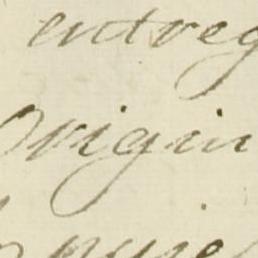 entreg
Origin